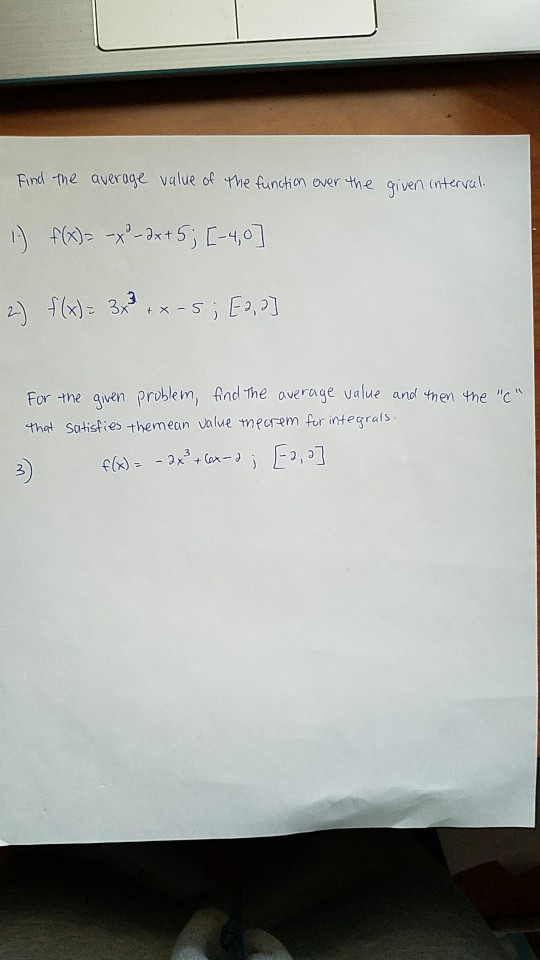 Find the average value of the function over the given interval.
1.) f(x) = -x² - 2x + 5; [-4,0]
2.) f(x) = 3x³ + x - 5; [-2,2]
For the given problem, find the average value and then the "c"
that satisfies the mean value theorem for integrals.
3) f(x) = -2x³ + 6x - 2; [-2,2]